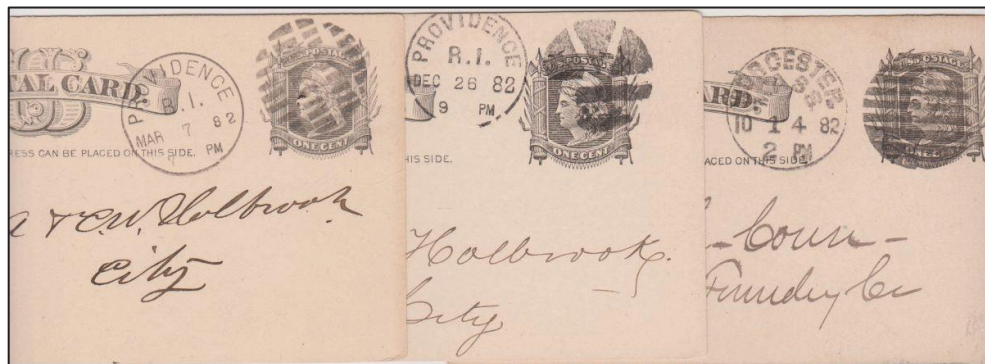 TAL CARD
PROVIDENCE
R.I.
MAR 82
7
7 PM
U.S. POSTAGE
ONE CENT
RESS CAN BE PLACED ON THIS SIDE.
& C.W. Holbrook
City
PROVIDENCE
R.I.
DEC 26 82
9 PM
U.S. POSTAGE
ONE CENT
HIS SIDE.
Holbrook.
City
ARD.
CESTER
MASS
10 1 4 82
2 PM
U.S. POSTAGE
ONE CE
ACED ON THIS SIDE.
Conn -
Foundry Co